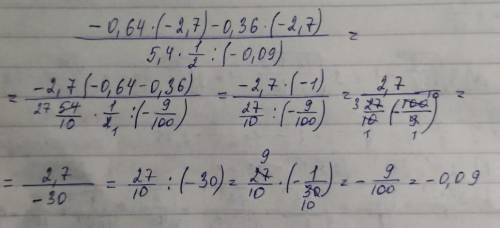 (-0,64·(-2,7)-0,36·(-2,7))/(5,4·1/2:(-0,09)) =
= (-2,7(-0,64-0,36))/(27 54/10·1/2 1:(-9/100)) = (-2,7·(-1))/(27/10:(-9/100)) = 2,7/(3 27/10 1(-100 10/9 1)) =
= 2,7/-30 = 27/10:(-30) = 9 27/10·(-1/30 10) = -9/100 = -0,09